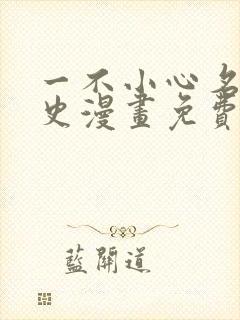 一不小心名
史漫畫免費
藍開道